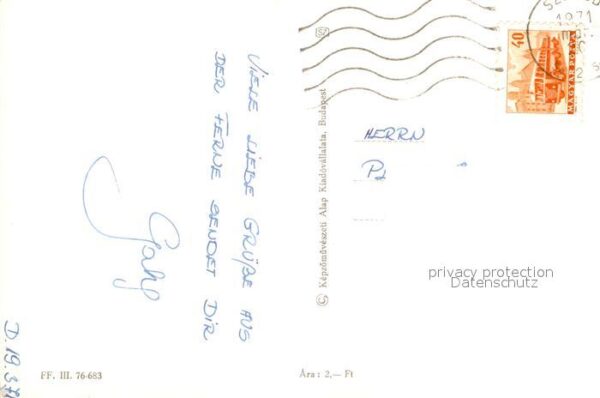 VIELE LIEBE GRÜßE AUS
DER FERNE SENDET DIR
D. 19.3.71
FF. III. 76-683
© Képzőművészeti Alap Kiadóvállalata, Budapest
1971
40
MAGYAR POSTA
HERRN
privacy protection
Datenschutz
Ára : 2,— Ft